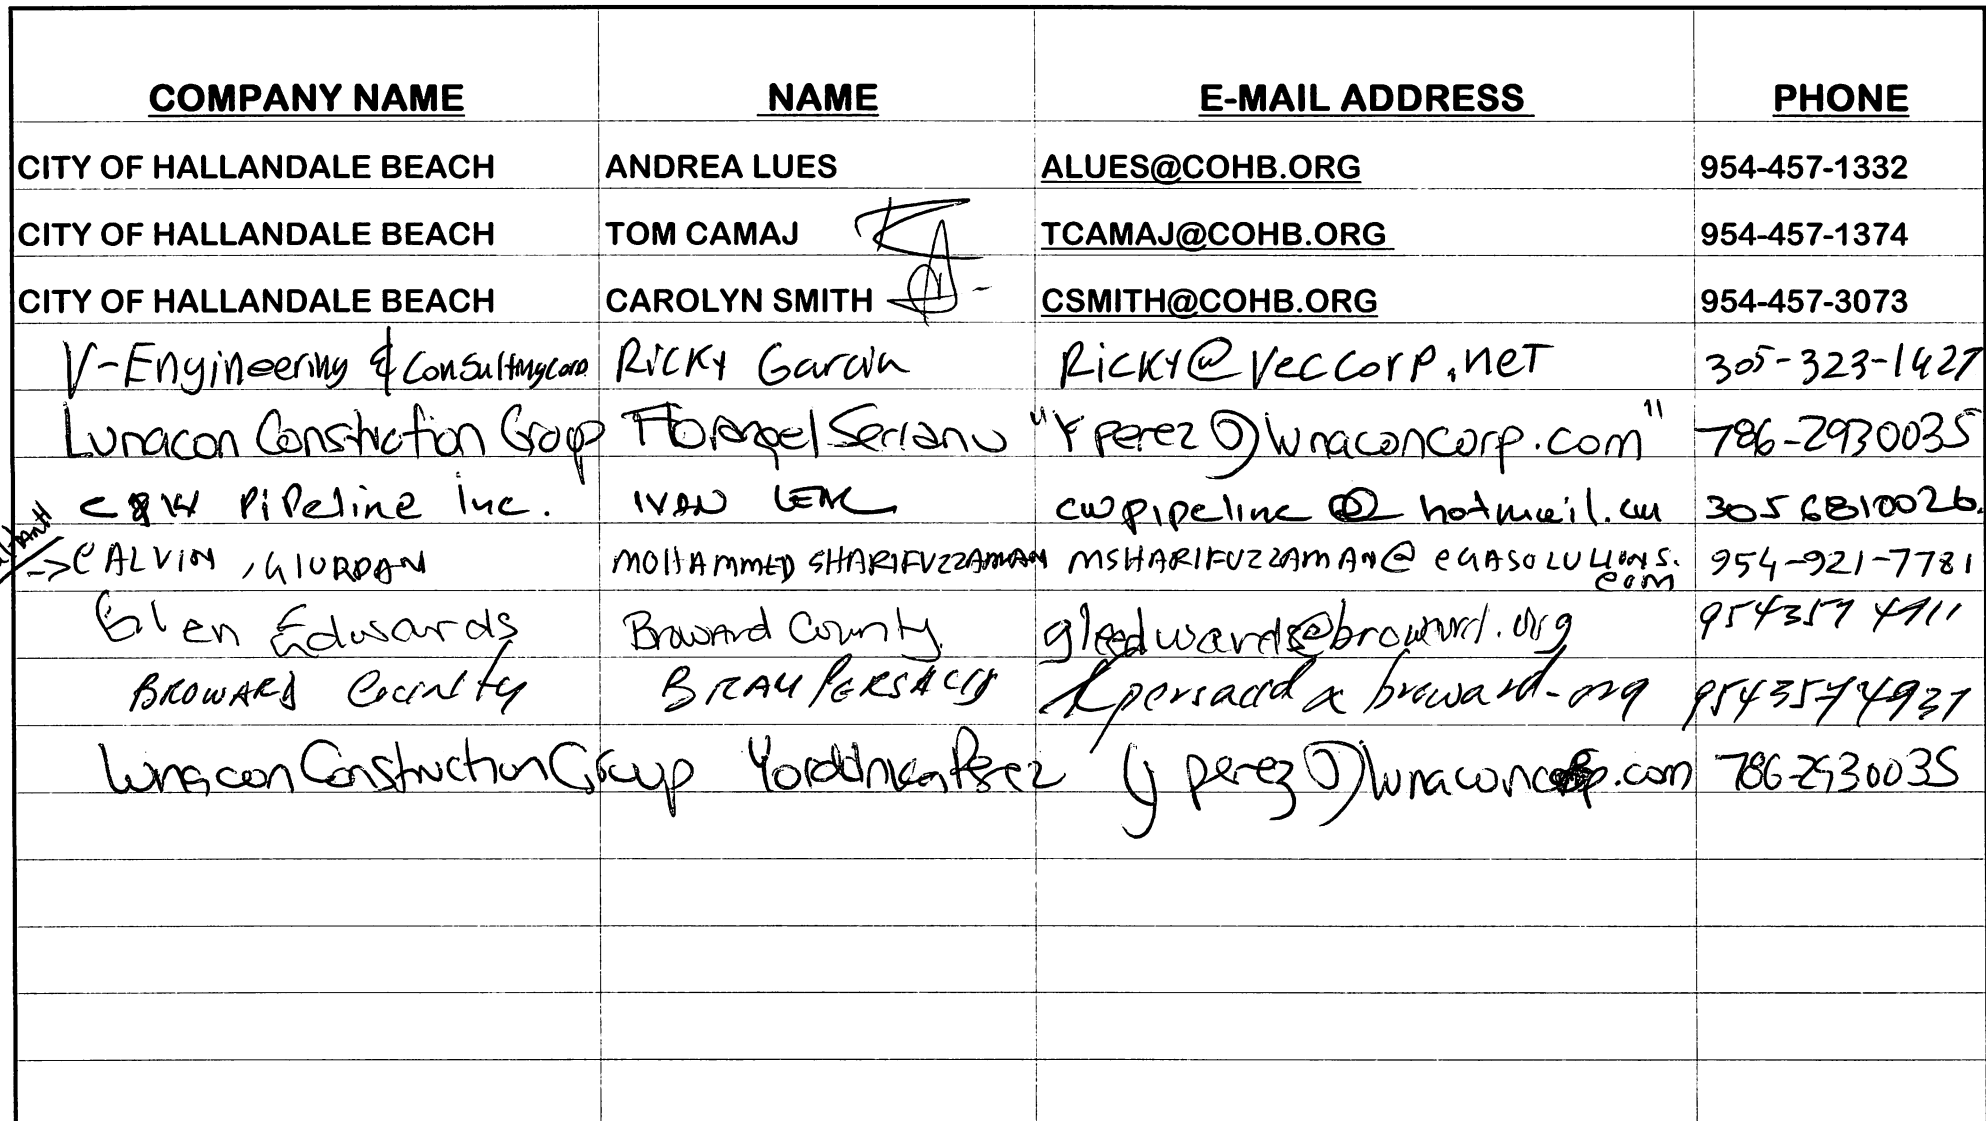 COMPANY NAME NAME E-MAIL ADDRESS PHONE
CITY OF HALLANDALE BEACH ANDREA LUES ALUES@COHB.ORG 954-457-1332
CITY OF HALLANDALE BEACH TOM CAMAJ TCAMAJ@COHB.ORG 954-457-1374
CITY OF HALLANDALE BEACH CAROLYN SMITH CSMITH@COHB.ORG 954-457-3073
V-Engineering & Consulting Corp Ricky Garcia Ricky@veccorp.net 305-323-1427
Lunacon Construction Group Florangel Serrano "Yperez@lunaconcorp.com" 786-2930035
C&W Pipeline Inc. IVAN cwpipeline@hotmail.com 305 6810026.
->CALVIN, GIORDAN MOHAMMED SHARIFUZZAMAN MSHARIFUZZAMAN@
954-921-7781
Glen Edwards Broward County gleedwards@broward.org 954357 4911
BROWARD County 9543574937
Lunacon Construction Group Perez yperez@lunaconcorp.com 786-2930035